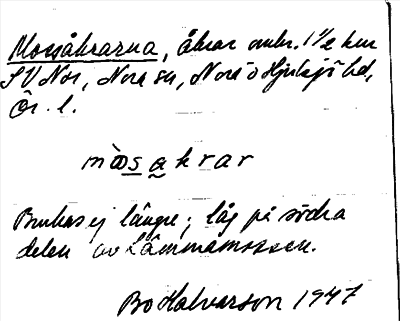 Mossåkrarna, åkrar omkr. 1½ km
SV Nor, Nora sn, Nora o Hjulsjö bd,
Ör. l.
mòsakrar
Brukas ej längre; låg på södra
delen av Lämmamossen.
Bo Halvarson 1947